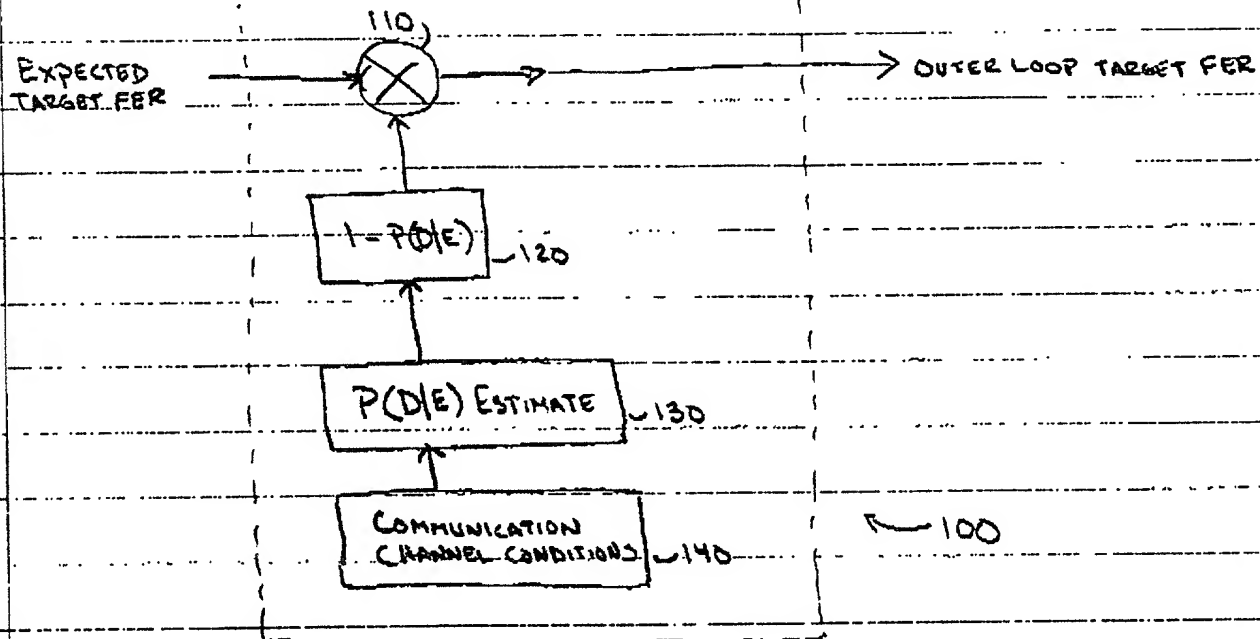 110
EXPECTED
TARGET FER
OUTER LOOP TARGET FER
1 - P(D|E)
120
P(D|E) ESTIMATE
130
COMMUNICATION
CHANNEL CONDITIONS
140
100